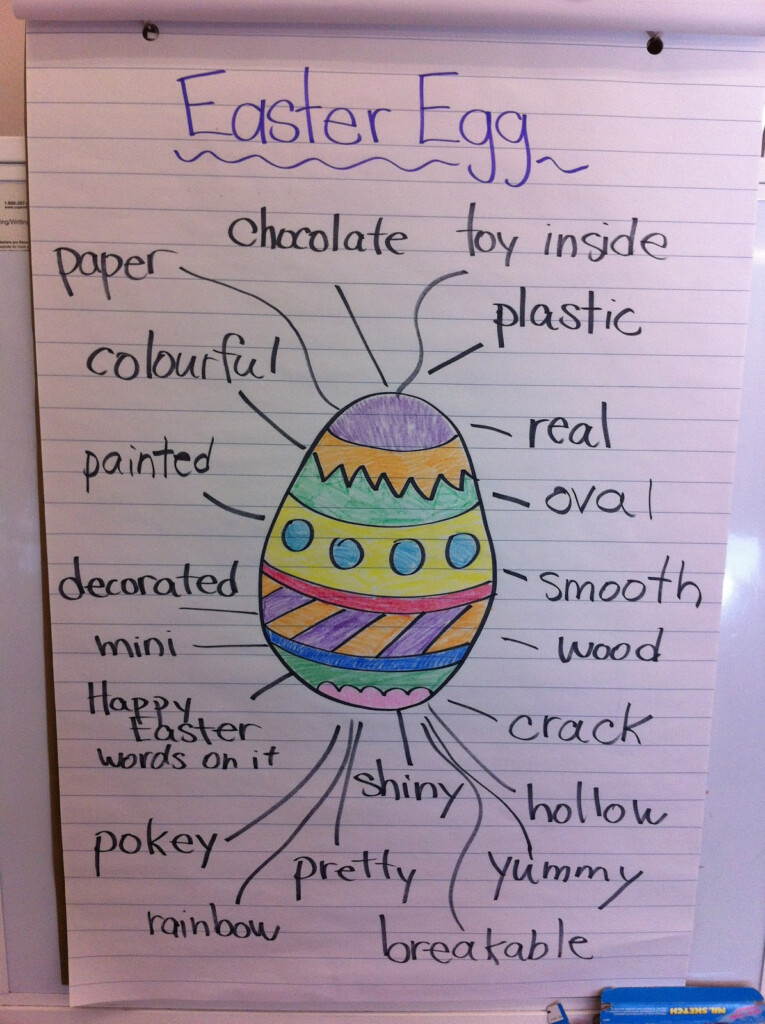 Easter Egg
chocolate toy inside
paper
plastic
colourful
real
painted
oval
decorated
smooth
mini
wood
Happy
Easter
words on it
crack
shiny
hollow
pokey
pretty
yummy
rainbow
breakable
MR. SKETCH